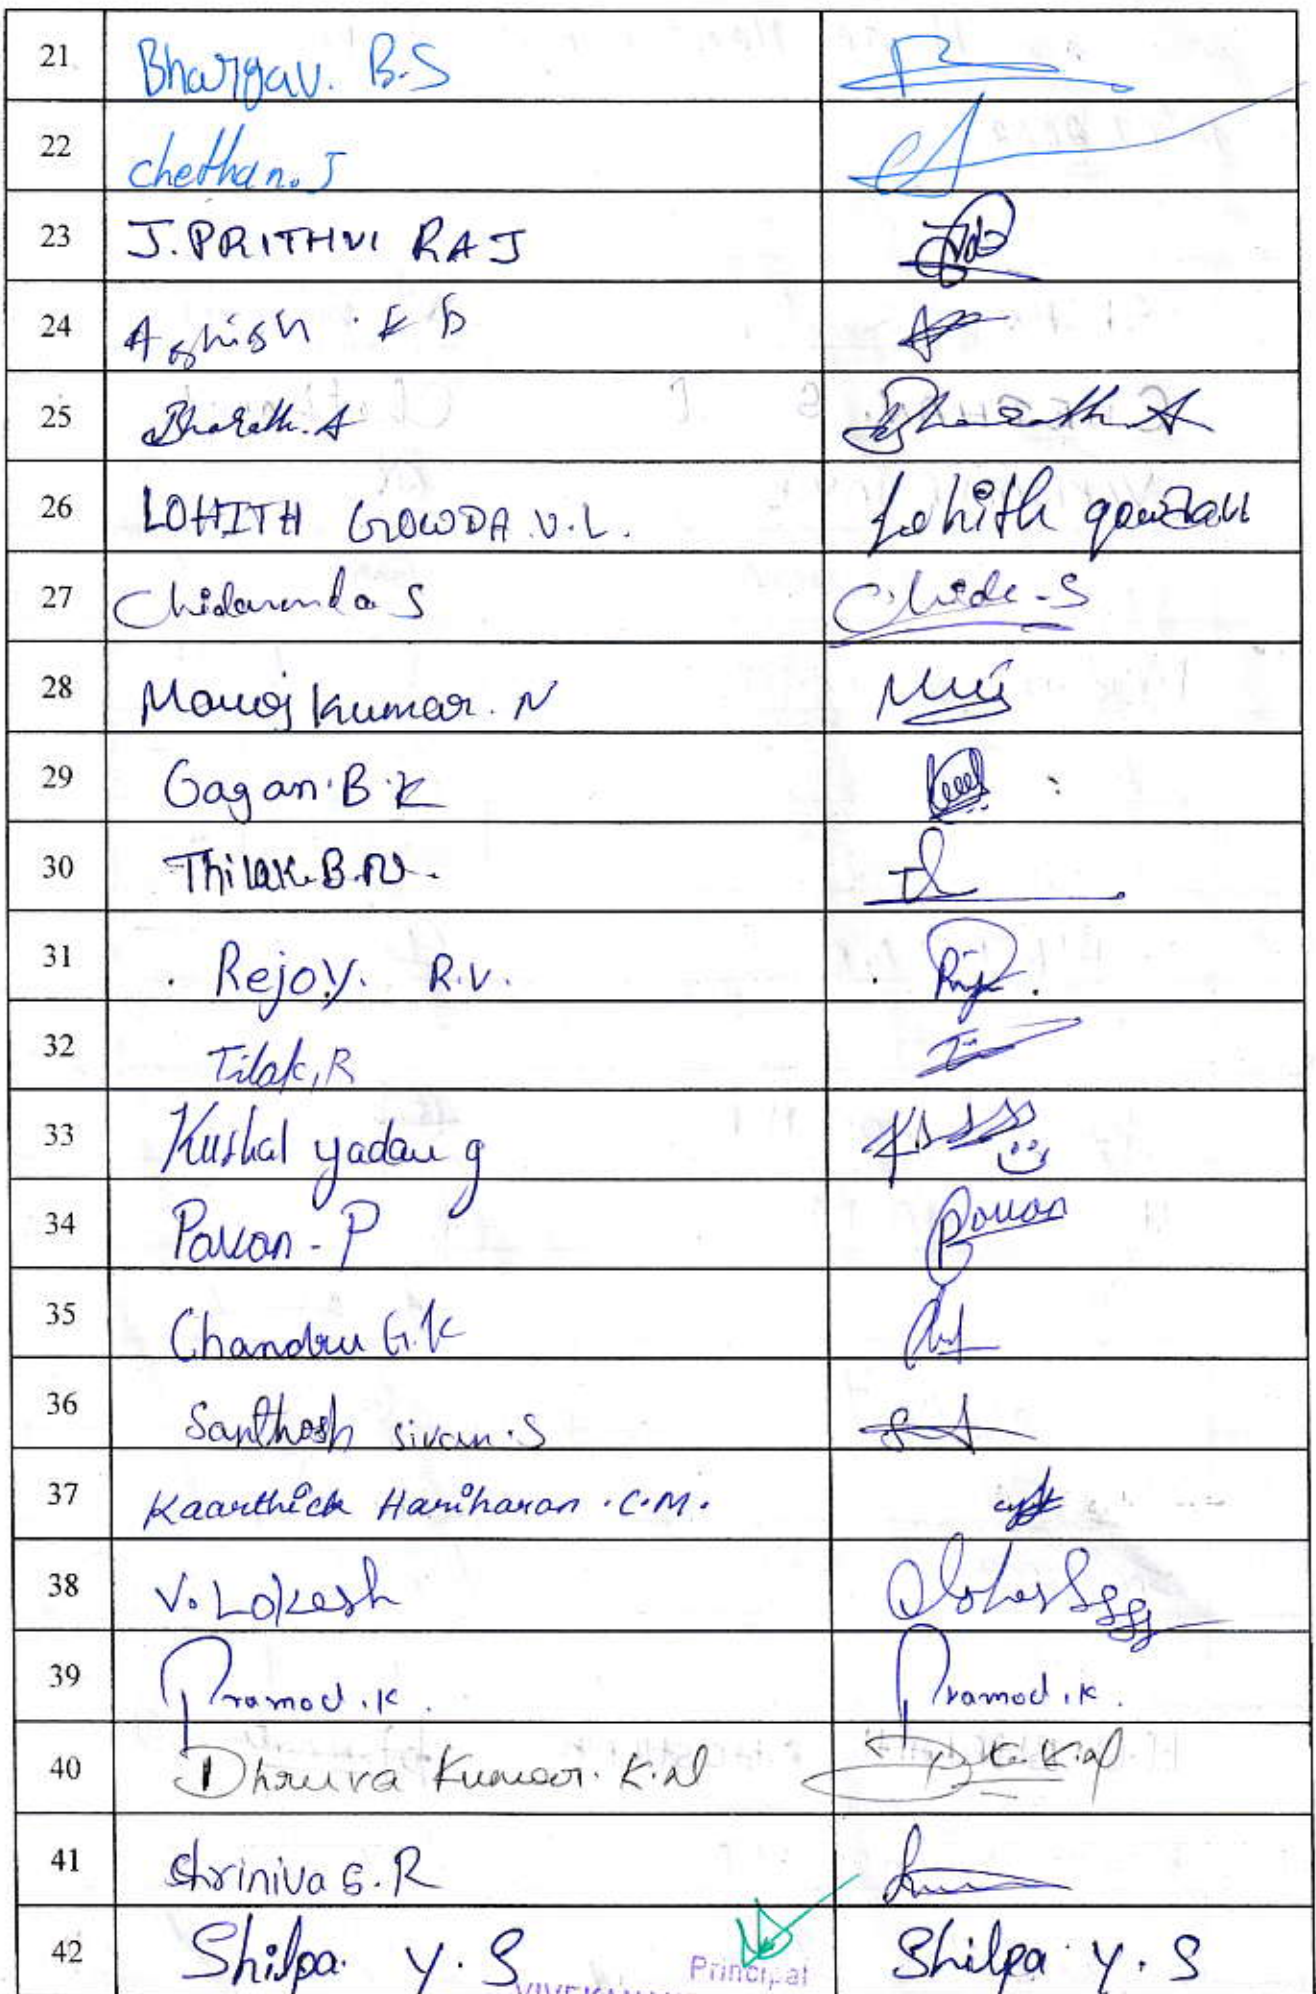 21 Bhargav. B.S
22 Chethan. J
23 J. PRITHVI RAJ
24 Ashish . K B
25 Bharath. A Bharath. A
26 LOHITH GOWDA V.L. Lohith gowda V L
27 Chidananda S Chida - S
28 Manoj kumar. N
29 Gagan. B. K
30 Thilak. B.N.
31 Rejoy. R.V.
32 Tilak, R
33 Kushal yadav g
34 Pavan - P Pavan
35 Chandru G.K
36 Santhosh sivan. S
37 Kaarthick Hariharan . C.M.
38 V. Lokesh
39 Pramod . K. Pramod . K.
40 Dhruva Kumar. K.N
41 Shrinivas. R
42 Shilpa. Y. S Shilpa Y. S
Principal